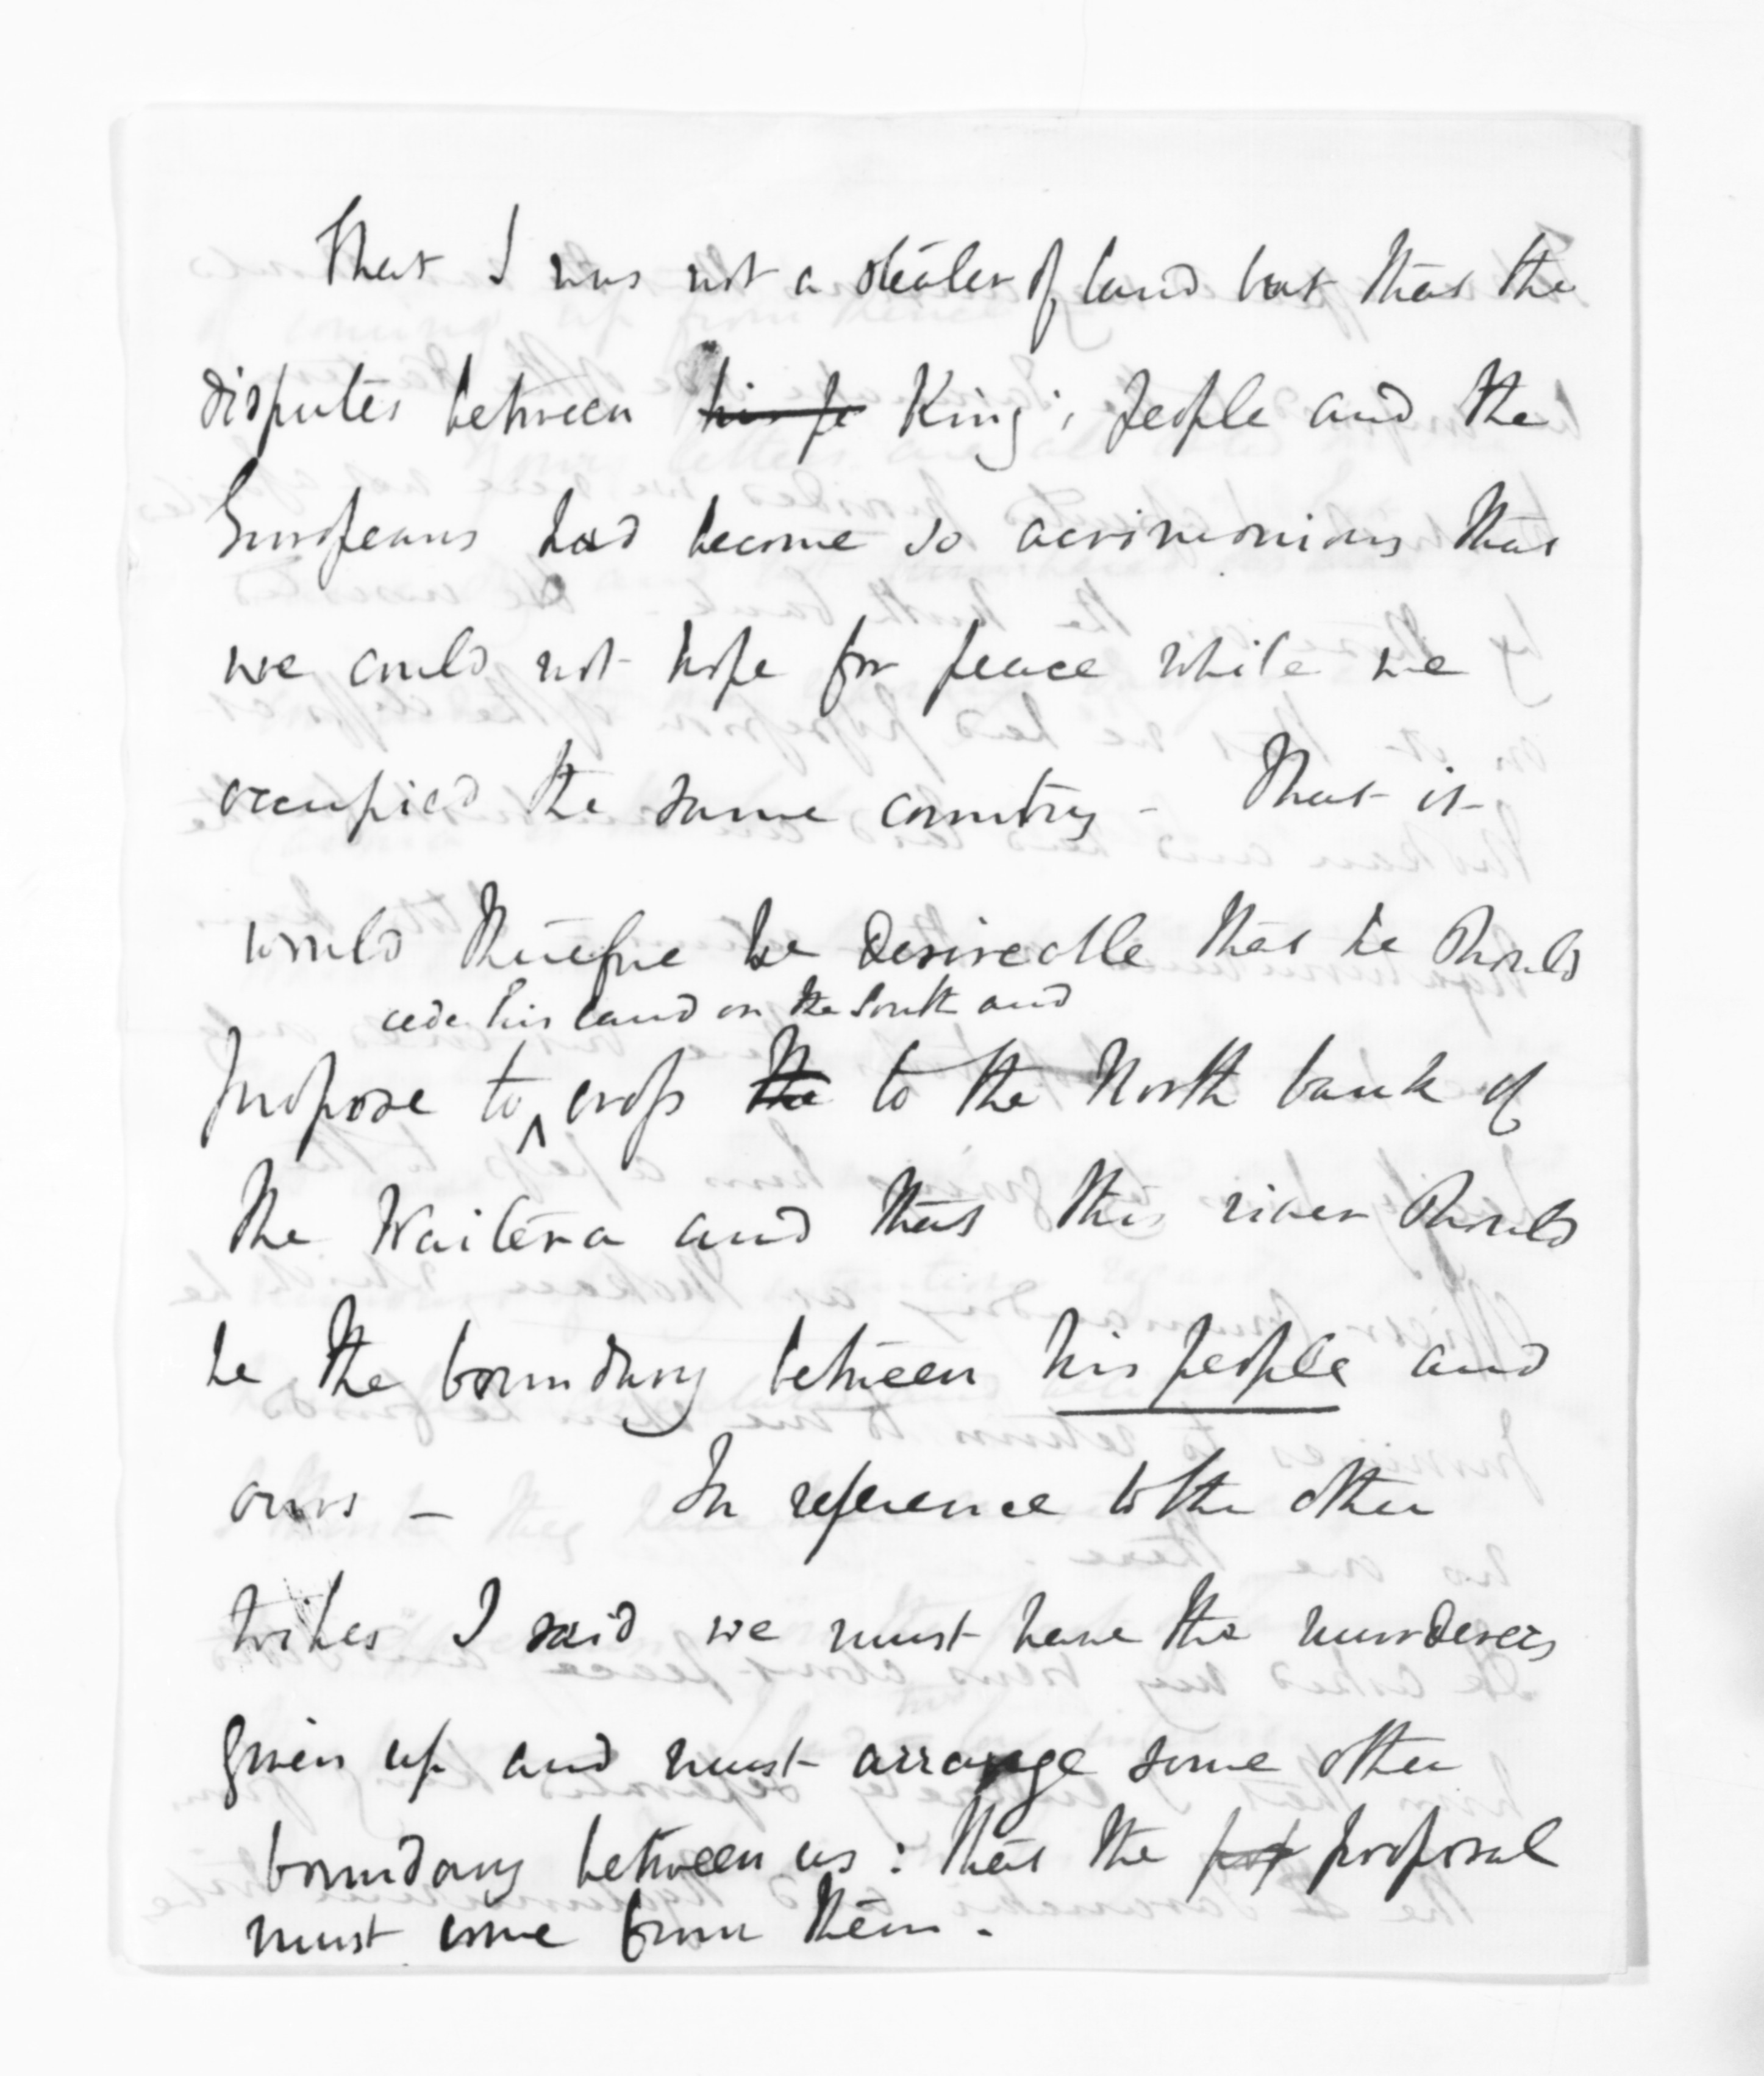 That I was not a stealer of land but that the
disputes between his pe King's people and the
Europeans had become so acrimonious that
we could not hope for peace while we
occupied the same country - That it
would therefore be desireable that he should
cede his land on the South and
propose to cross the to the North bank of
the Waitera and that this river should
be the boundary between his people and
ours - In reference to the other
tribes I said we must have the murderers
given up and must arrange some other
boundary between us : that the proposal
must come from them.